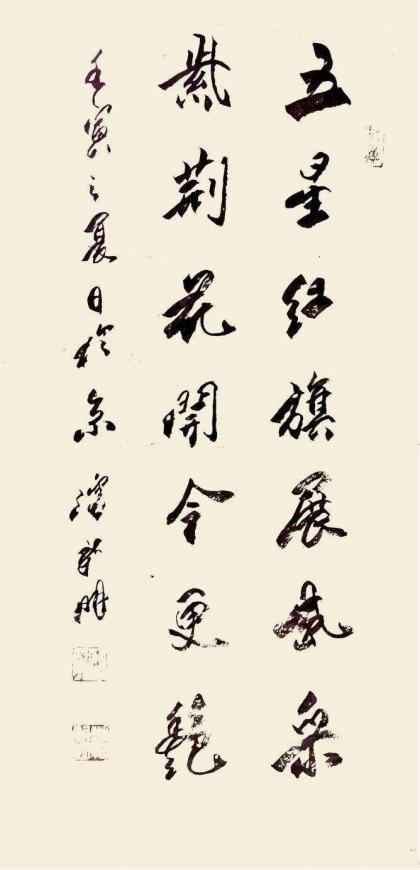 五星红旗展风采
紫荆花開今更艷
壬寅之夏日於京